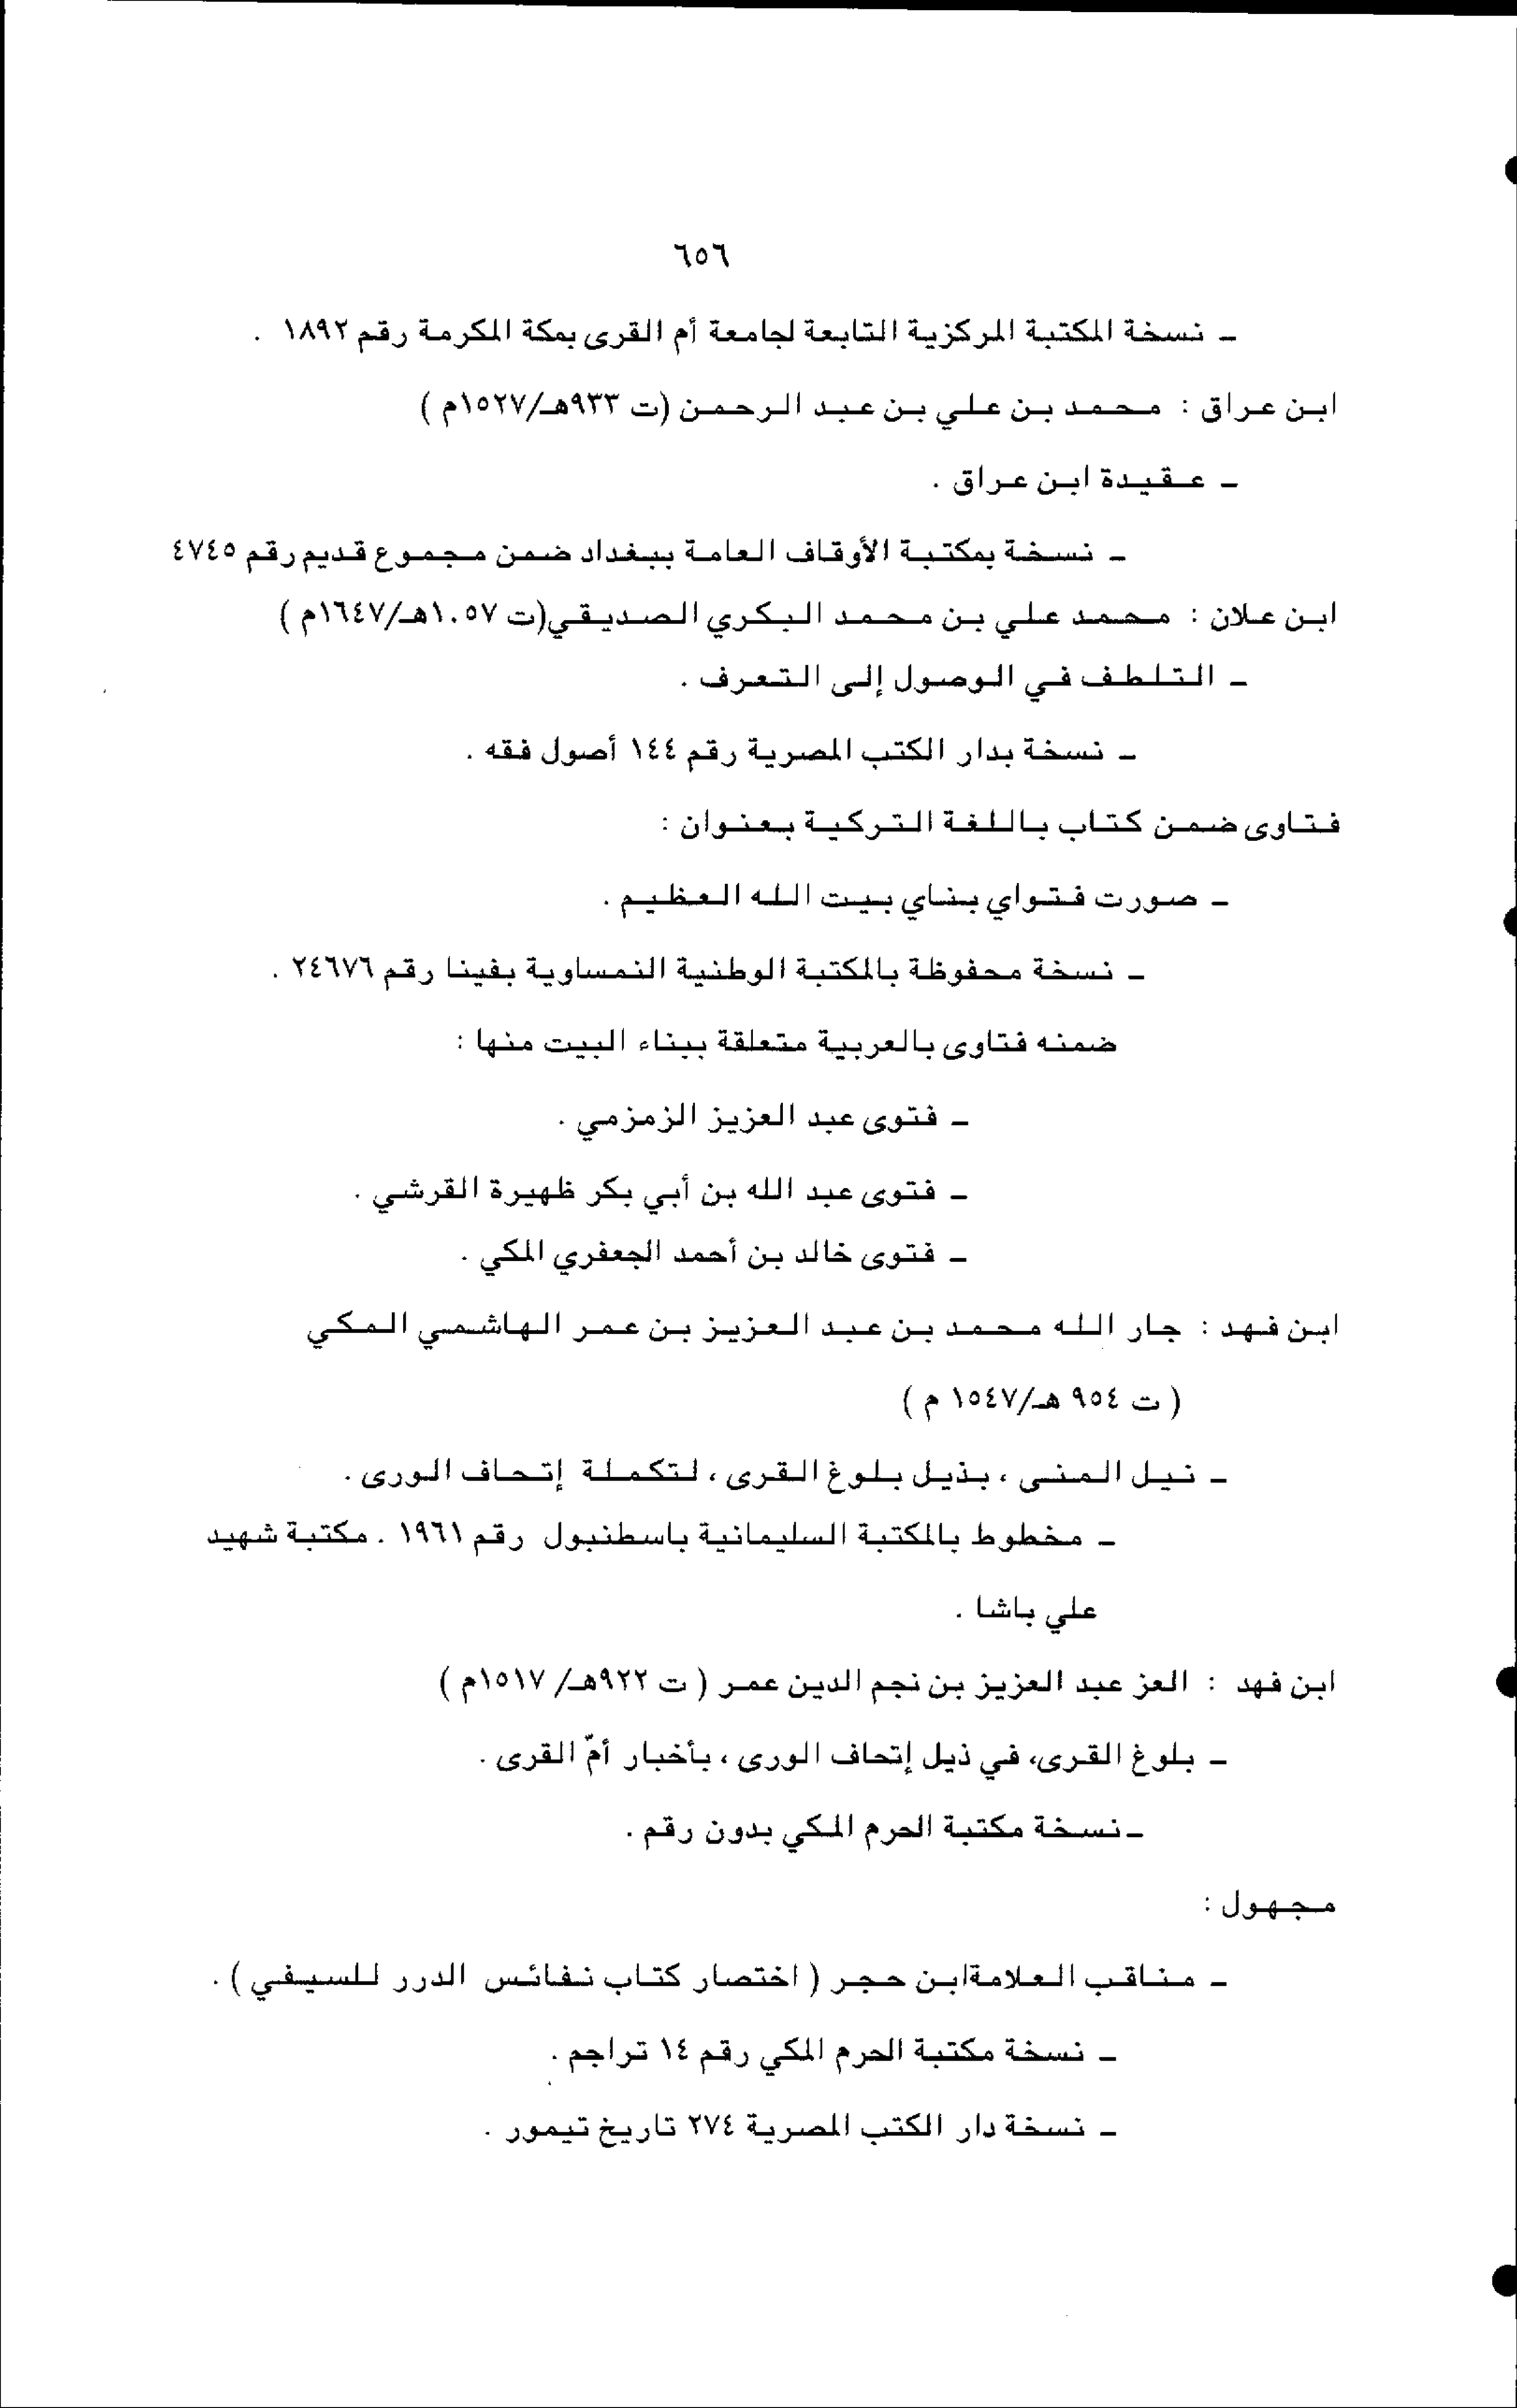 ٦٥٦
ـ نسخة المكتبة المركزية التابعة لجامعة أم القرى بمكة المكرمة رقم ١٨٩٢ .
ابن عراق : محمد بن علي بن عبد الرحمن (ت ٩٣٣هـ/١٥٢٧م )
ـ عقيدة ابن عراق .
ـ نسخة بمكتبة الأوقاف العامة ببغداد ضمن مجموع قديم رقم ٤٧٤٥
ابن علان : محمد علي بن محمد البكري الصديقي(ت ١٠٥٧هـ/١٦٤٧م )
ـ التلطف في الوصول إلى التعرف .
ـ نسخة بدار الكتب المصرية رقم ١٤٤ أصول فقه .
فتاوى ضمن كتاب باللغة التركية بعنوان :
ـ صورت فتواي بناي بيت الله العظيم .
ـ نسخة محفوظة بالمكتبة الوطنية النمساوية بفينا رقم ٢٤٦٧٦ .
ضمنه فتاوى بالعربية متعلقة ببناء البيت منها :
ـ فتوى عبد العزيز الزمزمي .
ـ فتوى عبد الله بن أبي بكر ظهيرة القرشي .
ـ فتوى خالد بن أحمد الجعفري المكي .
ابن فهد : جار الله محمد بن عبد العزيز بن عمر الهاشمي المكي
( ت ٩٥٤ هـ/١٥٤٧ م )
ـ نيل المنى ، بذيل بلوغ القرى ، لتكملة إتحاف الورى .
ـ مخطوط بالمكتبة السليمانية باسطنبول رقم ١٩٦١ . مكتبة شهيد
علي باشا .
ابن فهد : العز عبد العزيز بن نجم الدين عمر ( ت ٩٢٢هـ/ ١٥١٧م )
ـ بلوغ القرى، في ذيل إتحاف الورى ، بأخبار أمّ القرى .
ـ نسخة مكتبة الحرم المكي بدون رقم .
مجهول :
ـ مناقب العلامةابن حجر ( اختصار كتاب نفائس الدرر للسيفي ) .
ـ نسخة مكتبة الحرم المكي رقم ١٤ تراجم .
ـ نسخة دار الكتب المصرية ٢٧٤ تاريخ تيمور .